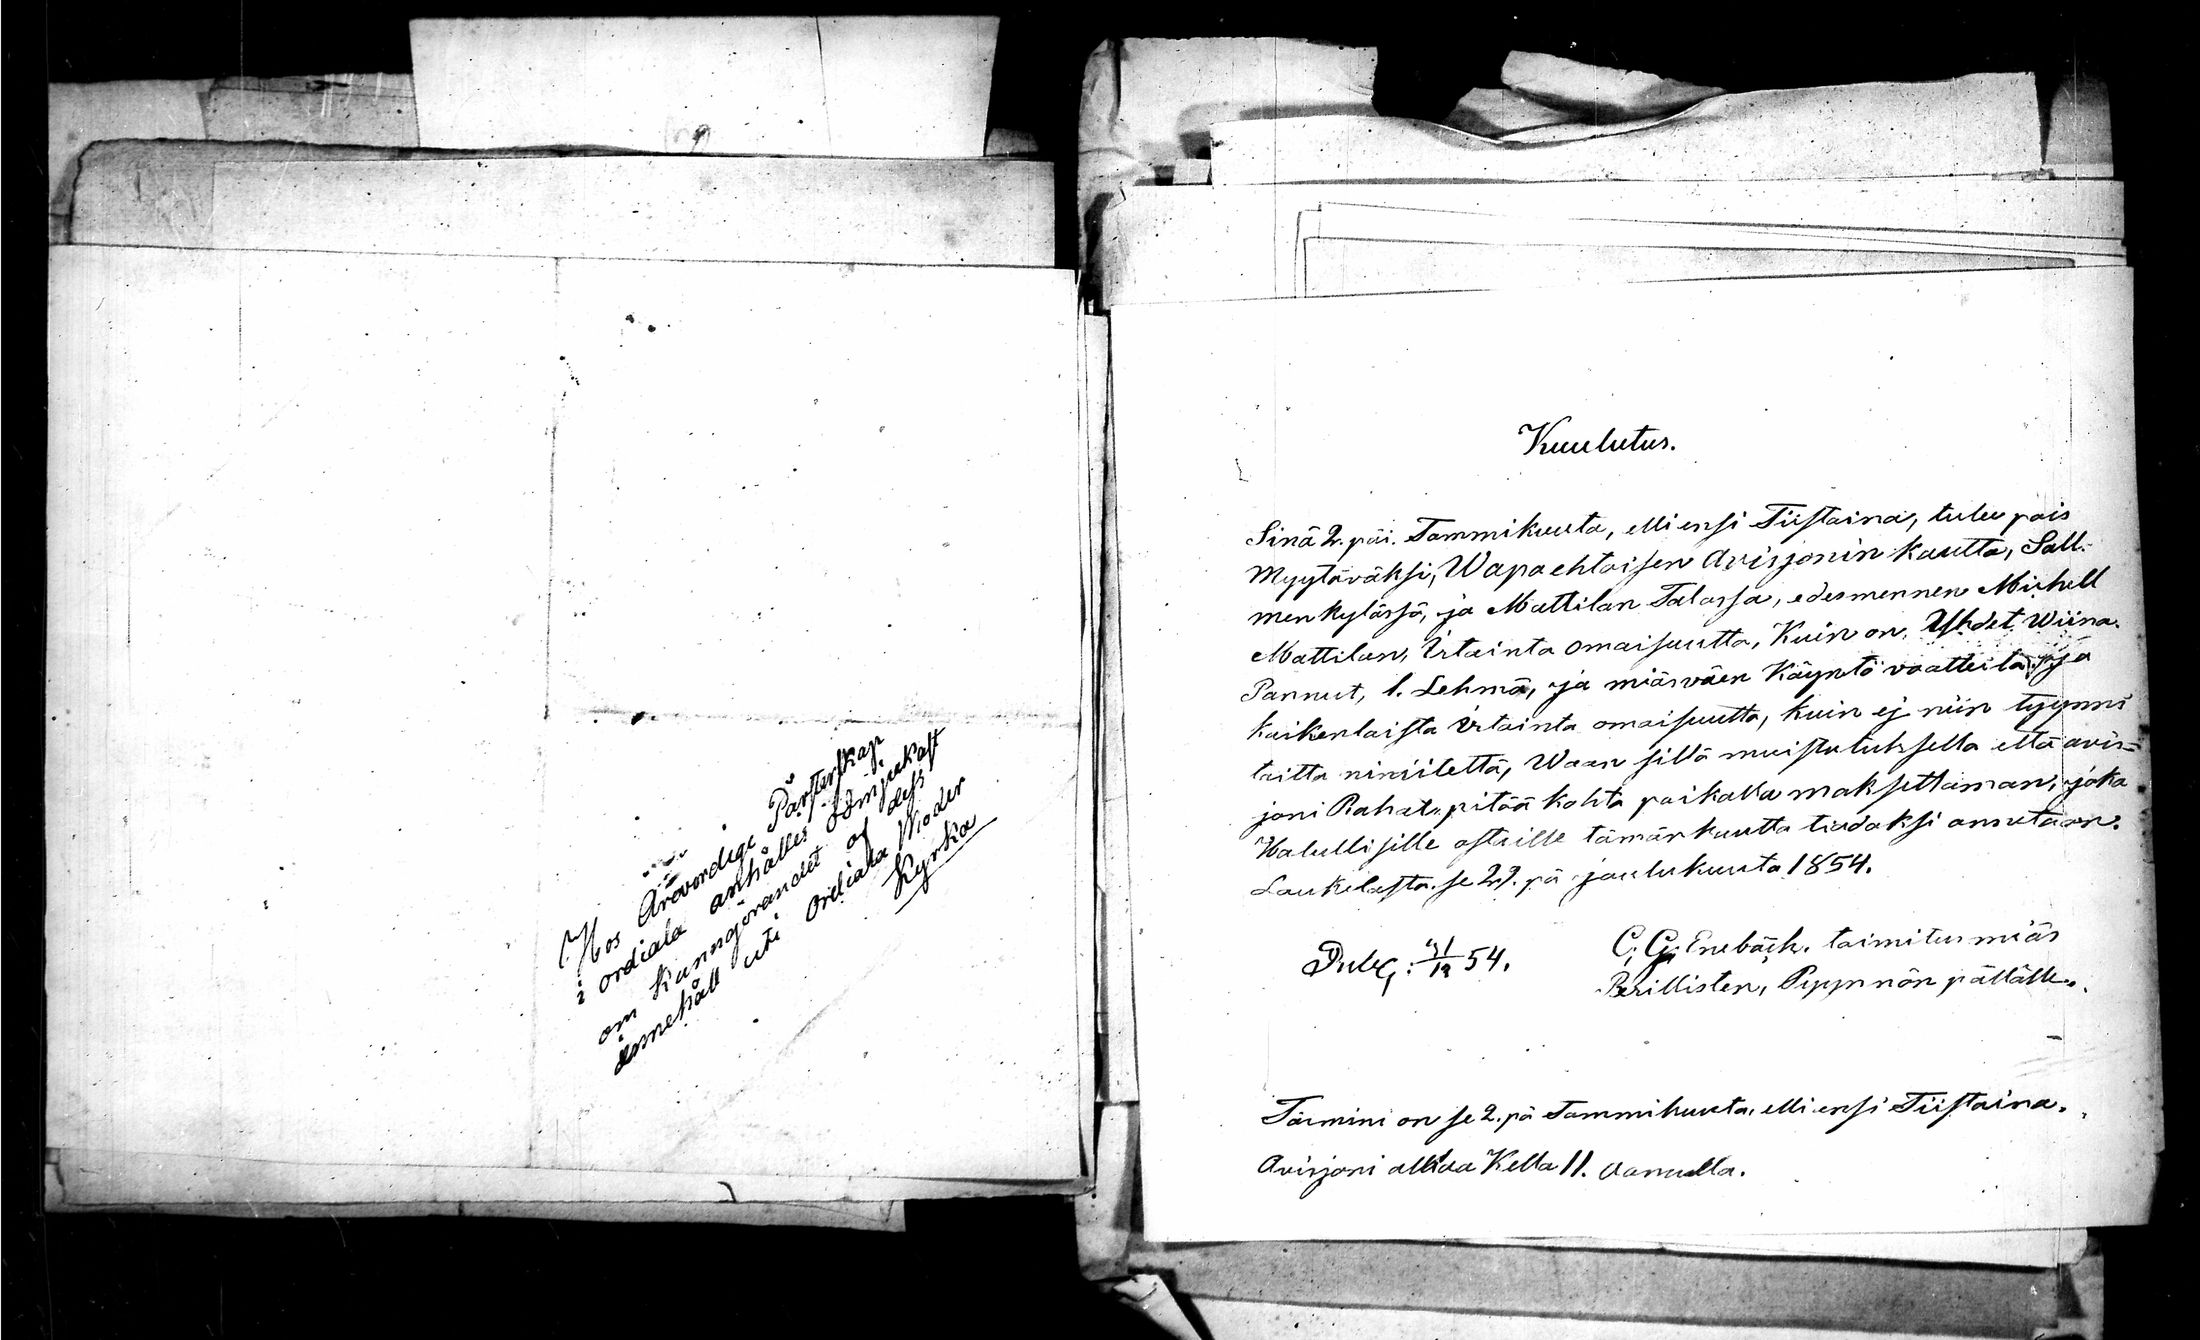 Hos Ärovordige Pårsterskap
i ordiala anhålles ödmjukast
om kunngörandet af dess
innehåll uti Ordiala Moder
Kyrka
Kuulutus.
Sinä 2. päi. Tammikuuta, elli ensi Tiistaina, tulee pois
Myytäväksi, Wapaehtoisen Avisjonin kautta, Sall-
menkylässä, ja Mattilan Talossa, edesmennen Michell
Mattilan, Irtainta omaisuutta, Kuin on, Yhdet Wiina-
Pannut, 1. Lehmä, ja miäsväen Käyntö vaatteita, ja
kaikenlaista irtainta omaisuutta, kuin ej niin tyynni
taitta nimitettä, Waan sillä muistutuksella että avis-
joni Rahat, pitää kohta paikalla maksettaman, joka
Halullisille ostaille tämän kautta tiedoksi annetaan.
Laukelasta. se 29. pä joulukuuta 1854.
Publ: 31/12 54.
C. G. Enebäck. toimitus miäs
Perillisten, Pyynnön päällälle.
Toimini on se 2. pä Tammikuuta, elli ensi Tiistaina.
Avisjoni alkaa Kella 11. aamulla.